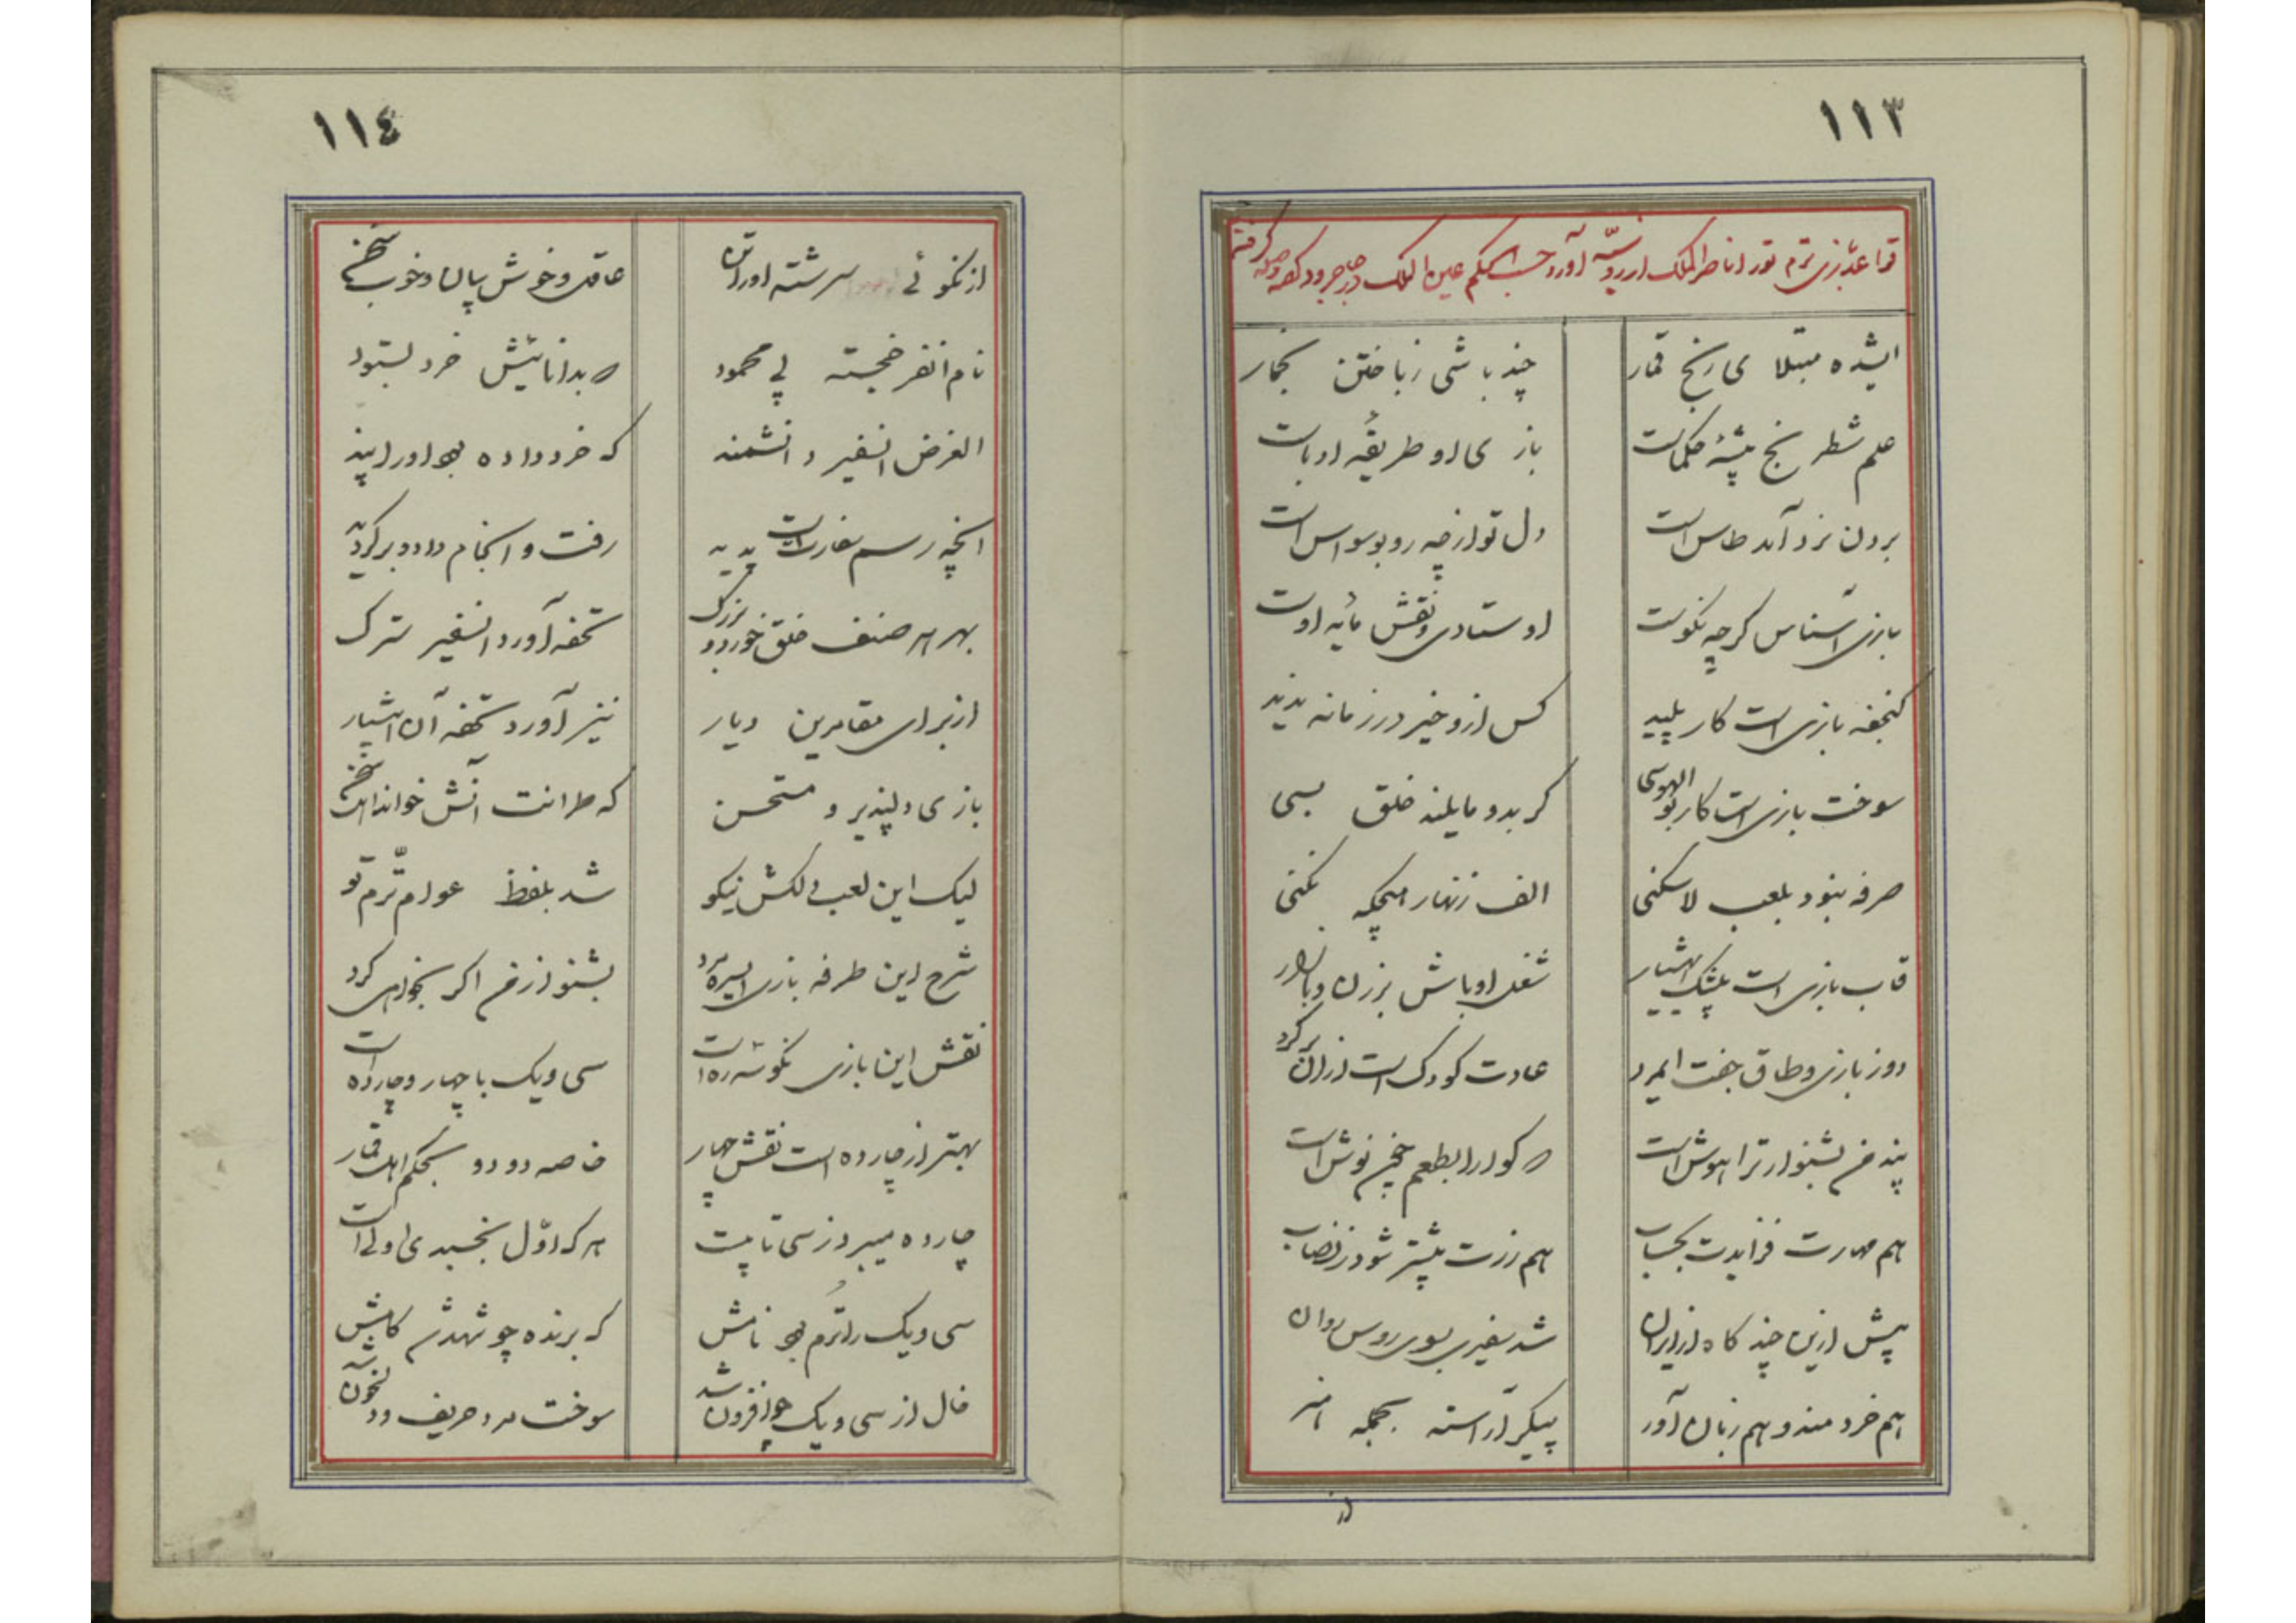 ١١٣
قواعد بازی ترم تو را ناصرالملک از روسیه آورد حسب الحکم عین الملک در جاجرود گفته و صله گرفتم
ایشده مبتلای رنج قمار چند باشی زباختن بخمار
علم شطرنج پیشۀ حکماست بازی او طریقۀ ادباست
بردن نرد آمد طاس است دل تو از چه رو بوسواس است
بازی آس ناس گرچه نکوست اوستادی و نقش مایۀ اوست
گنجفه بازی است کار پلید کس ازو خیر در زمانه ندید
سوخت بازی است کار بوالهوسی گر بدو مایلند خلق بسی
صرفه نبود بلعب لاسکنی الف زنهار میچکه نکنی
قاب بازی است بیشک ایهشیار شغل اوباش برزن و بازار
دوز بازی و طاق جفت ایمرد عادت کودک است ازان برگرد
پند من بشنو ار ترا هوش است کو ارا بطعم چون نوش است
هم مهارت فزایدت بحساب هم زرت بیشتر شود ز نصاب
پیش ازین چند گاه از ایران شد سفیری بسوی روس روان
هم خردمند و هم زبان آور پیکر آراسته بجمله هنر
از
١١٤
از نکوئی سرشته او را تن عاقل و خوش بیان و خوب سخن
نام آنفر خجسته پی محمود که بدانائیش خرد بستود
الغرض آنسفیر دانشمند که خرد داده بود او را پند
آنچه رسم سفارتست پدید رفت و انجام داد و برگردید
بهر هر صنف خلق خورد و بزرگ تحفه آورد آنسفیر سترک
از برای مقامرین دیار نیز آورد تحفه آن هشیار
بازی دلپذیر و مستحسن که طرانت آنش خواند اهل سخن
لیک این لعب دلکش نیکو شد بلفظ عوام ترم تو
شرح این طرفه بازی ایسره مرد بشنو از من اگر بخواهی کرد
نقش این بازی نکو شده است سی و یک با چهار و چارده است
بهتر از چارده است نقش چهار خاصه دو دو بحکم اهل قمار
چارده میبرد ز سی تا بیست هر که اول بخسبد ی اولی است
سی و یک را ترم بود نامش که برنده چو شهد شد کامش
خال از سی و یک چو افزون شد سوخت مرد حریف و دلخون آن